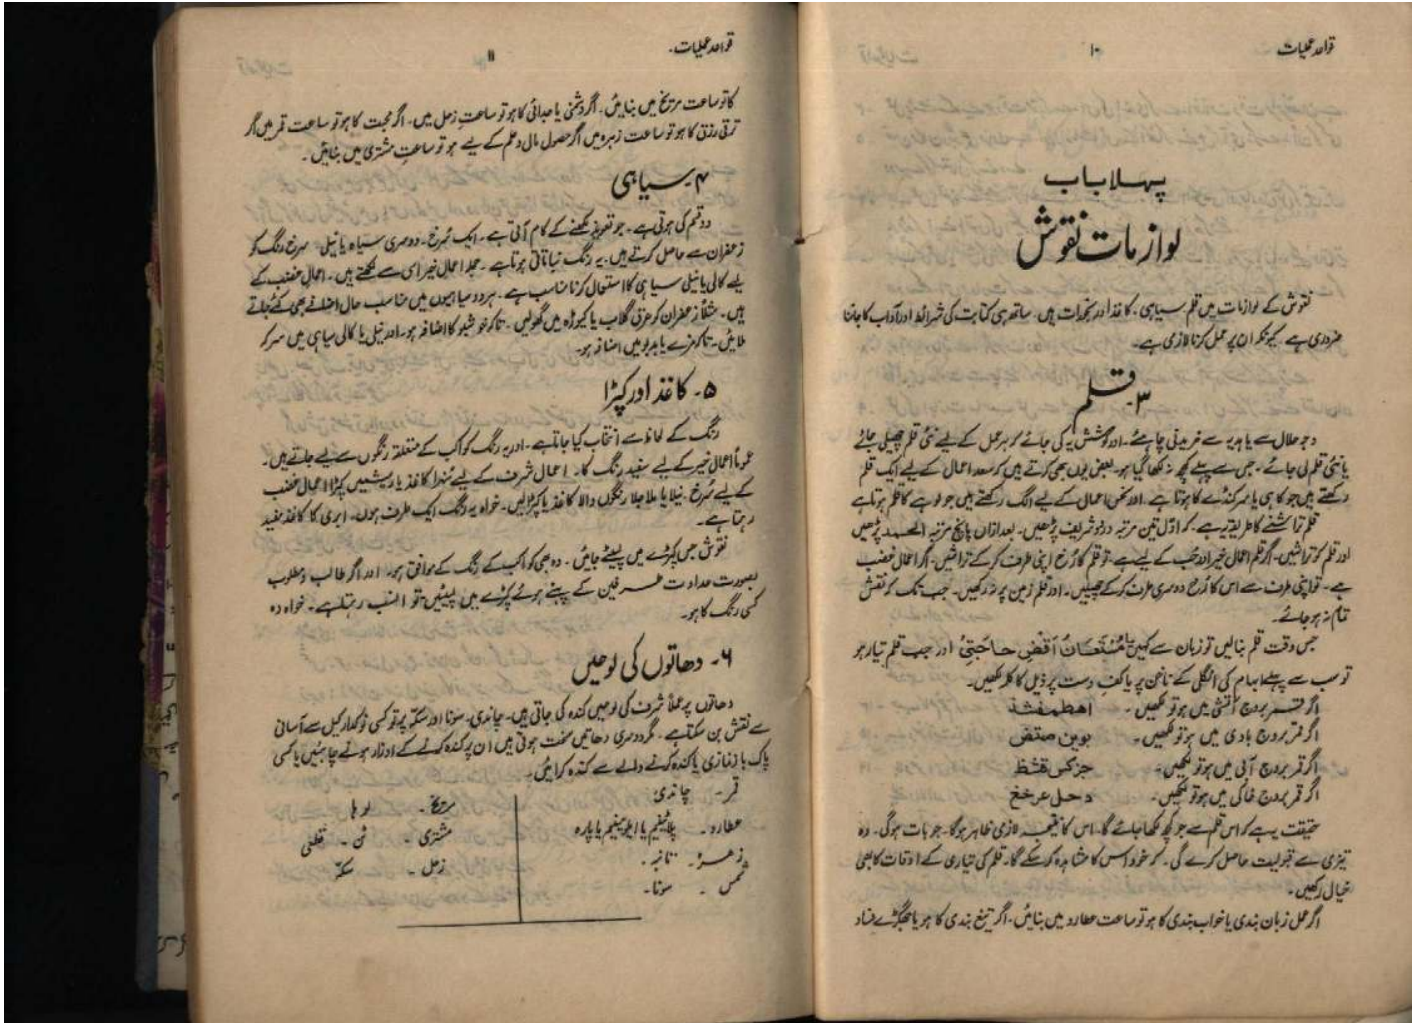 قواعد عملیات
۱۰
پہلا باب
لوازمات نقوش
نقوش کے لوازمات میں قلم سیاہی۔ کاغذ اور بخورات ہیں۔ ساتھ ہی کتابت کی شرائط اور آداب کا جاننا
ضروری ہے کیونکہ ان پر عمل کرنا لازمی ہے۔
۳۔ قلم
وجہ حلال سے یا ہدیہ سے خریدنی چاہئے۔ اور کوشش یہ کی جائے کہ ہر عمل کے لیے نئی قلم چھیلی جائے
یا نئی قلم لی جائے۔ جس سے پہلے کچھ نہ لکھا گیا ہو۔ بعض یوں بھی کرتے ہیں کہ سعد اعمال کے لیے ایک قلم
رکھتے ہیں جو کاہی یا سرکنڈے کا ہوتا ہے۔ اور نحس اعمال کے لیے الگ رکھتے ہیں جو لوہے کا قلم ہوتا ہے
قلم تراشنے کا طریقہ یہ ہے۔ کہ اوّل تین مرتبہ درود شریف پڑھیں۔ بعد ازاں پانچ مرتبہ الحمد پڑھیں
اور قلم کو تراشیں۔ اگر قلم اعمال خیر اور حُب کے لیے ہے۔ تو قلم کا رُخ اپنی طرف کر کے تراشیں۔ اگر اعمال غضب
ہے۔ تو اپنی طرف سے اس کا رُخ دوسری طرف کر کے چھیلیں۔ اور قلم زمین پر نہ رکھیں۔ جب تک کہ نقش
تمام نہ ہو جائے۔
جس وقت قلم بنالیں تو زبان سے کہیں یَا مُسْتَعَانُ اَقْضِ حَاجَتِیْ اور جب قلم تیار ہو
تو سب سے پہلے ابہام کی انگلی کے ناخن پر یا کف دست پر ذیل کا کلمہ لکھیں۔
اگر قمر بروج آتشی میں ہو تو لکھیں۔ اھطمفشذ
اگر قمر بروج بادی میں ہو تو لکھیں۔ بوین صتض
اگر قمر بروج آبی میں ہو تو لکھیں۔ جزکس قثظ
اگر قمر بروج خاکی میں ہو تو لکھیں۔ دحل عرخغ
حقیقت یہ ہے کہ اس قلم سے جو کچھ لکھا جائے گا۔ اس کا نتیجہ لازمی ظاہر ہو گا۔ جو بات ہوگی۔ وہ
تیزی سے قبولیت حاصل کرے گی۔ کہ خود اس کا مشاہدہ کر سکے گا۔ قلم کی تیاری کے اوقات کا بھی
خیال رکھیں۔
اگر عمل زبان بندی یا خواب بندی کا ہو تو ساعت عطارد میں بنائیں۔ اگر تیغ بندی کا ہو یا جھگڑے فساد
قواعد عملیات۔
۱۱
کا تو ساعت مریخ میں بنائیں۔ اگر دشمنی یا جدائی کا ہو تو ساعتِ زحل میں۔ اگر محبت کا ہو تو ساعت قمر میں اگر
ترقی رزق کا ہو تو ساعت زہرہ میں اگر حصول مال و علم کے لیے ہو تو ساعتِ مشتری میں بنائیں۔
۴۔ سیاہی
دو قسم کی ہوتی ہے۔ جو تعویذ لکھنے کے کام آتی ہے۔ ایک سُرخ۔ دوسری سیاہ یا نیلی سرخ رنگ کو
زعفران سے حاصل کرتے ہیں۔ یہ رنگ نباتاتی ہوتا ہے۔ جملہ اعمال خیر اسی سے لکھتے ہیں۔ اعمال غضب کے
لیے کالی یا نیلی سیاہی کا استعمال کرنا مناسب ہے۔ ہر دو سیاہیوں میں مناسب حال اضافے بھی کئے جاتے
ہیں۔ مثلاً زعفران کو عرق گلاب یا کیوڑہ میں گھولیں۔ تاکہ خوشبو کا اضافہ ہو۔ اور نیل یا کالی سیاہی میں سرکہ
ملائیں۔ تاکہ مزے یا بدبو میں اضافہ ہو۔
۵۔ کاغذ اور کپڑا
رنگ کے لحاظ سے انتخاب کیا جاتا ہے۔ اور یہ رنگ کواکب کے متعلقہ رنگوں سے لیے جاتے ہیں۔
عموماً اعمال خیر کے لیے سفید رنگ کا۔ اعمال شرف کے لیے سُنہرا کاغذ یا ریشمیں کپڑا اعمال غضب
کے لیے سُرخ۔ نیلا یا ملا جلا رنگوں والا کاغذ یا کپڑا لیں۔ خواہ یہ رنگ ایک طرف ہوں۔ ابری کا کاغذ مفید
رہتا ہے۔
نقوش جس کپڑے میں لپیٹے جائیں۔ وہ بھی کواکب کے رنگ کے موافق ہو۔ اور اگر طالب و مطلوب
بصورت عداوت طرفین کے پہنے ہوئے کپڑے میں لپیٹیں تو انسب رہتا ہے۔ خواہ وہ
کسی رنگ کا ہو۔
۶۔ دھاتوں کی لوحیں
دھاتوں پر عملاً شرف کی لوحیں کندہ کی جاتی ہیں۔ چاندی۔ سونا اور سکّہ پر تو کسی نوکدار کیل سے آسانی
سے نقش بن سکتا ہے۔ مگر دوسری دھاتیں سخت ہوتی ہیں ان پر کندہ کرنے کے اوزار ہونے چاہئیں یا کسی
پاک باز نمازی یا کندہ کرنے والے سے کندہ کرائیں۔
قمر۔ چاندی
عطارد۔ پلاٹینم یا ایلومینیم یا پارہ
زہرہ۔ تانبہ۔
شمس۔ سونا۔
مریخ۔ لوہا
مشتری۔ ٹن۔ قلعی
زحل۔ سکّہ